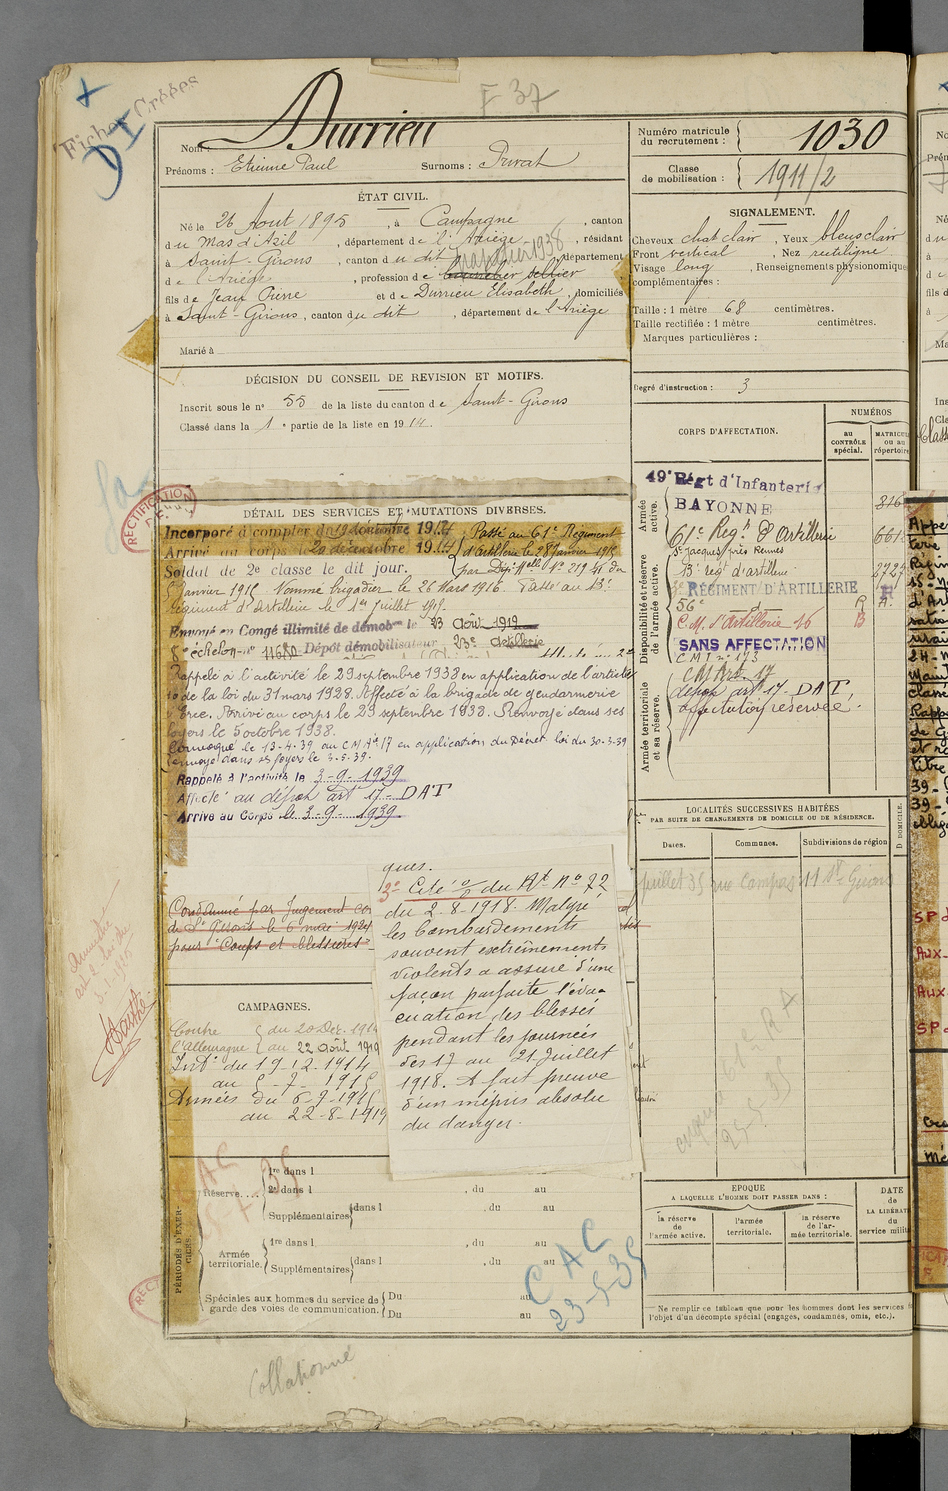 F 37
Fiches Créées
D I
Nom : Durrieu
Prénoms : Etienne Paul Surnoms : Privat
Numéro matricule du recrutement : 1030
Classe de mobilisation : 1911/2
ÉTAT CIVIL.
Né le 26 Aout 1895, à Campagne, canton
du Mas d'Azil, département de l'Ariège, résidant
à Saint-Girons, canton du dit, département
de l'Ariège, profession de sellier
papetier 1938
fils de Jean Pierre et de Durrieu Elisabeth, domiciliés
à Saint-Girons, canton du dit, département de l'Ariège
Marié à
SIGNALEMENT.
Cheveux chat clair, Yeux bleus clair
Front vertical, Nez rectiligne
Visage long, Renseignements physionomiques
complémentaires :
Taille : 1 mètre 68 centimètres.
Taille rectifiée : 1 mètre centimètres.
Marques particulières :
Degré d'instruction : 3
DÉCISION DU CONSEIL DE REVISION ET MOTIFS.
Inscrit sous le n° 55 de la liste du canton de Saint-Girons
Classé dans la 1e partie de la liste en 1914.
CORPS D'AFFECTATION.
NUMÉROS
au CONTRÔLE spécial.
MATRICULE ou au répertoire
Armée active.
Disponibilité et réserve de l'armée active.
Armée territoriale et sa réserve.
49e Régt d'Infanterie
BAYONNE
816
61e Regt d'Artillerie
St Jacques près Rennes
13e regt d'artillerie
RÉGIMENT D'ARTILLERIE
56e
C.M. d'Artillerie 16
SANS AFFECTATION
C M I n° 173
C M Art. 17
dépôt art 17. DAT,
affectation réservée.
RECTIFICATION
DÉTAIL DES SERVICES ET MUTATIONS DIVERSES.
Incorporé à compter du 19 décembre 1914
Arrivé au corps le 20 décembre 1914
Passé au 61e Régiment
d'Artillerie le 28 Janvier 1915
Soldat de 2e classe le dit jour.
par Dép. Melle N° 219 du
5 Janvier 1915 Nommé brigadier le 26 Mars 1916. Passé au 13e
Régiment d'Artillerie le 1er Juillet 1917.
Envoyé en Congé illimité de démob le 23 Août 1919
5e échelon n° 11680 Dépôt démobilisateur 23e Artillerie
Rappelé à l'activité le 29 septembre 1938 en application de l'article
40 de la loi du 31 mars 1928. Affecté à la brigade de gendarmerie
d'Ercé. Arrivé au corps le 29 septembre 1938. Renvoyé dans ses
foyers le 5 octobre 1938.
Convoqué le 13-4-39 au C M A 17 en application du Décret loi du 30-3-39
renvoyé dans ses foyers le 3-5-39.
Rappelé à l'activité le 3-9-1939
Affecté au dépôt art 17 - DAT
Arrivé au Corps le 3-9-1939
Condamné par Jugement
de St Girons le 6 mai 1924
pour "Coups et blessures"
Amnistié
art. 2 loi du
3-1-1925
ques.
3° Cité à l'o/ du Rt N° 72
du 2-8-1918. Malgré
les bombardements
souvent extrêmements
violents a assuré d'une
façon parfaite l'éva-
cuation des blessés
pendant les journées
des 17 au 21 Juillet
1918. A fait preuve
d'un mépris absolu
du danger.
CAMPAGNES.
Contre l'Allemagne du 20 Déc. 1914
au 22 Août 1919
Intr du 19-12-1914
au 5-7-1915
Armées du 6-7-1915
au 22-8-1919
LOCALITÉS SUCCESSIVES HABITÉES
PAR SUITE DE CHANGEMENTS DE DOMICILE OU DE RÉSIDENCE.
Dates. Communes. Subdivisions de région D. DOMICILE.
juillet 35 rue Campas 11 St Girons
23-5-35
EPOQUE
A LAQUELLE L'HOMME DOIT PASSER DANS :
la réserve de l'armée active.
l'armée territoriale.
la réserve de l'armée territoriale.
DATE de LA LIBÉRATION du service militaire
Ne remplir ce tableau que pour les hommes dont les services
l'objet d'un décompte spécial (engagés, condamnés, omis, etc.).
PÉRIODES D'EXERCICES.
Réserve....
1re dans l
2e dans l , du au
Supplémentaires dans l , du au
Armée territoriale.
1re dans l , du au
Supplémentaires dans l , du au
Spéciales aux hommes du service de
garde des voies de communication.
Du au
Du au
CAC
23-5-35
Collationné